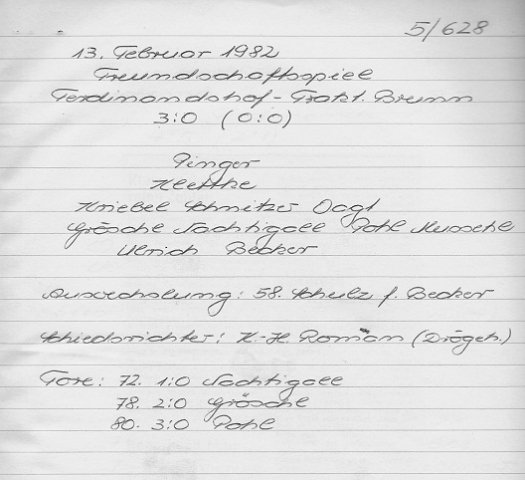 5/628
13. Februar 1982
Freundschaftsspiel
Ferdinandshof - Trakt. Brunn
3:0 (0:0)
Pinger
Klettke
Kniebel Schnitzer Vogt
Grösche Nachtigall Pohl Musche
Ulrich Becker
Auswechslung: 58. Schulz f. Becker
Schiedsrichter: K.-H. Roman (Drögeh.)
Tore: 72. 1:0 Nachtigall
78. 2:0 Grösche
80. 3:0 Pohl